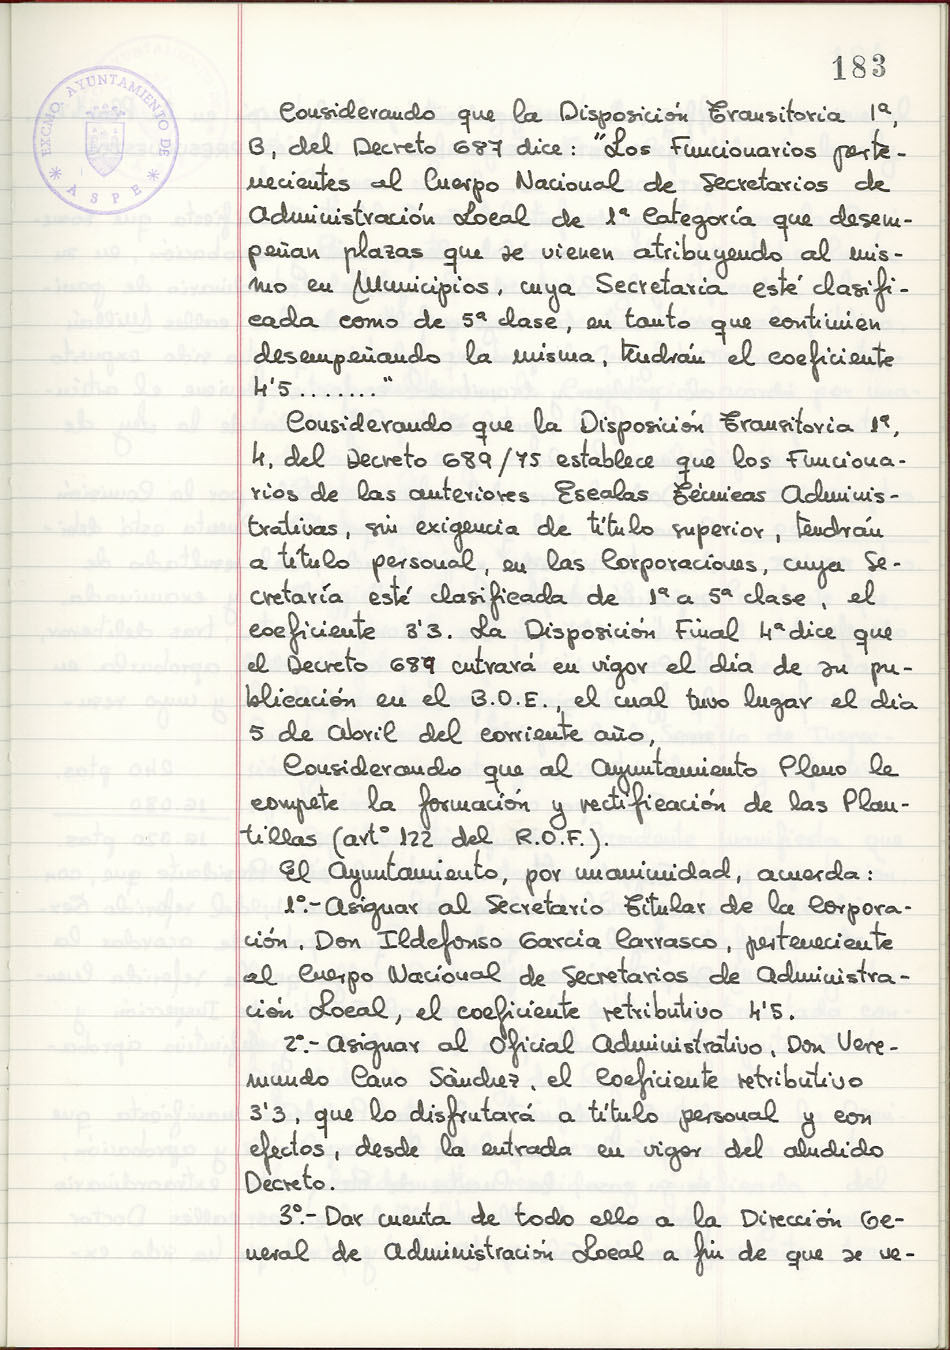 183
EXCMO. AYUNTAMIENTO DE
* ASPE *
Considerando que la Disposición Transitoria 1ª,
B, del Decreto 687 dice: "Los Funcionarios perte-
necientes al Cuerpo Nacional de Secretarios de
Administración Local de 1ª Categoría que desem-
peñan plazas que se vienen atribuyendo al mis-
mo en Municipios, cuya Secretaria esté clasifi-
cada como de 5ª clase, en tanto que continúen
desempeñando la misma, tendrán el coeficiente
4'5......."
Considerando que la Disposición Transitoria 1ª,
4, del Decreto 689/75 establece que los Funciona-
rios de las anteriores Escalas Técnicas Adminis-
trativas, sin exigencia de título superior, tendrán
a título personal, en las Corporaciones, cuya Se-
cretaría esté clasificada de 1ª a 5ª clase, el
coeficiente 3'3. La Disposición Final 4ª dice que
el Decreto 689 entrará en vigor el día de su pu-
blicación en el B.O.E., el cual tuvo lugar el día
5 de Abril del corriente año,
Considerando que al Ayuntamiento Pleno le
compete la formación y rectificación de las Plan-
tillas (artº 122 del R.O.F.).
El Ayuntamiento, por unanimidad, acuerda:
1º.- Asignar al Secretario Titular de la Corpora-
ción, Don Ildefonso Garcia Carrasco, perteneciente
al Cuerpo Nacional de Secretarios de Administra-
ción Local, el coeficiente retributivo 4'5.
2º.- Asignar al Oficial Administrativo, Don Vere-
mundo Cano Sánchez, el Coeficiente retributivo
3'3, que lo disfrutará a título personal y con
efectos, desde la entrada en vigor del aludido
Decreto.
3º.- Dar cuenta de todo ello a la Dirección Ge-
neral de Administración Local a fin de que se ve-